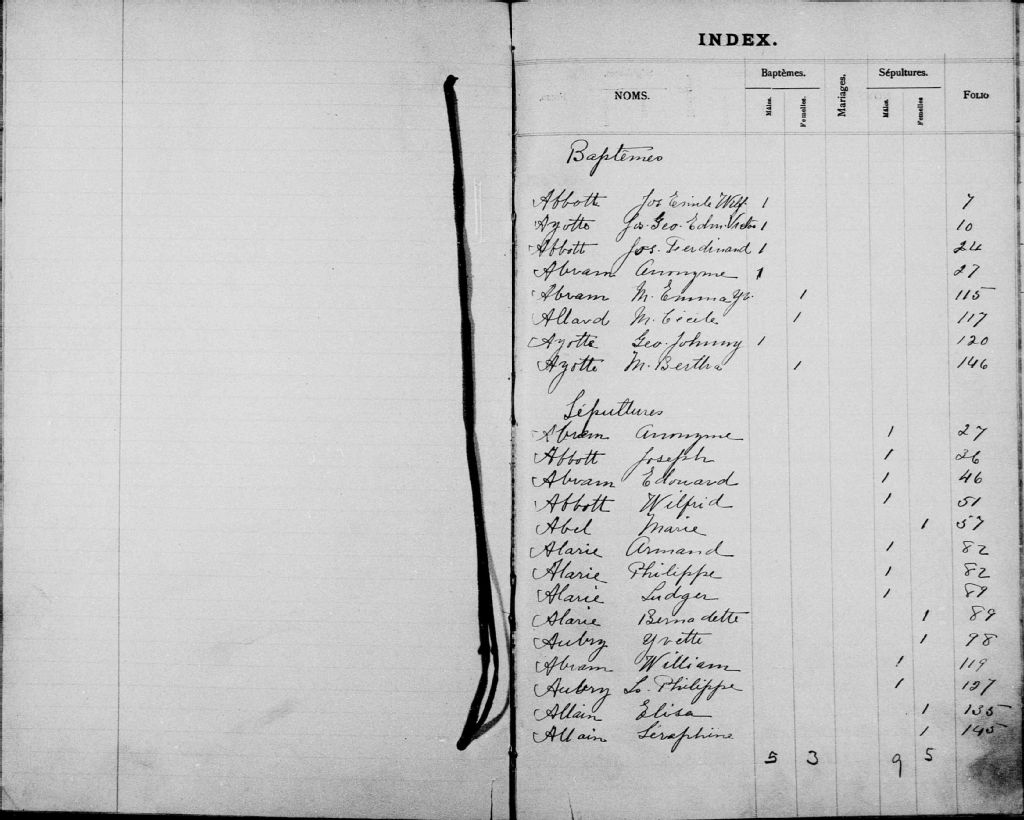 INDEX.
NOMS. Baptèmes. Mariages. Sépultures. FOLIO
Mâles. Femelles. Mâles. Femelles
Baptêmes
Abbott Jos Emile Wilf. 1 7
Ayotte Jos. Geo. Edm. Victor 1 10
Abbott Jos. Ferdinand 1 24
Abram Anonyme 1 27
Abram M. Emma Yv. 1 115
Allard M. Cécile 1 117
Ayotte Geo. Johnny 1 120
Ayotte M. Bertha 1 146
Sépultures
Abram Anonyme 1 27
Abbott Joseph 1 26
Abram Edouard 1 46
Abbott Wilfrid 1 51
Abel Marie 1 57
Alarie Armand 1 82
Alarie Philippe 1 82
Alarie Ludger 1 89
Alarie Bernadette 1 89
Aubry Yvette 1 98
Abram William 1 119
Aubry Ls. Philippe 1 127
Allain Elisa 1 135
Allain Séraphine 1 145
5 3 9 5